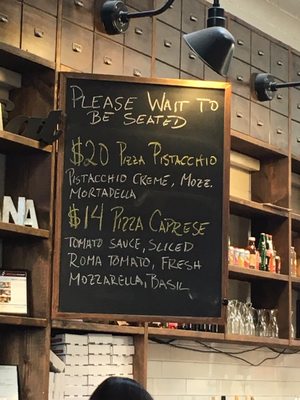 PLEASE WAIT TO
BE SEATED
$20 PIZZA PISTACCHIO
PISTACCHIO CREME, MOZZ.
MORTADELLA
$14 PIZZA CAPRESE
TOMATO SAUCE, SLICED
ROMA TOMATO, FRESH
MOZZARELLA, BASIL
NA